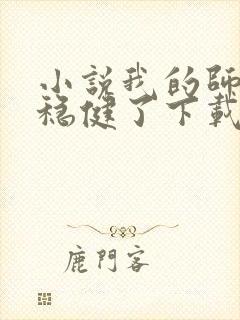 小說我的師
穩健了下載
鹿門客